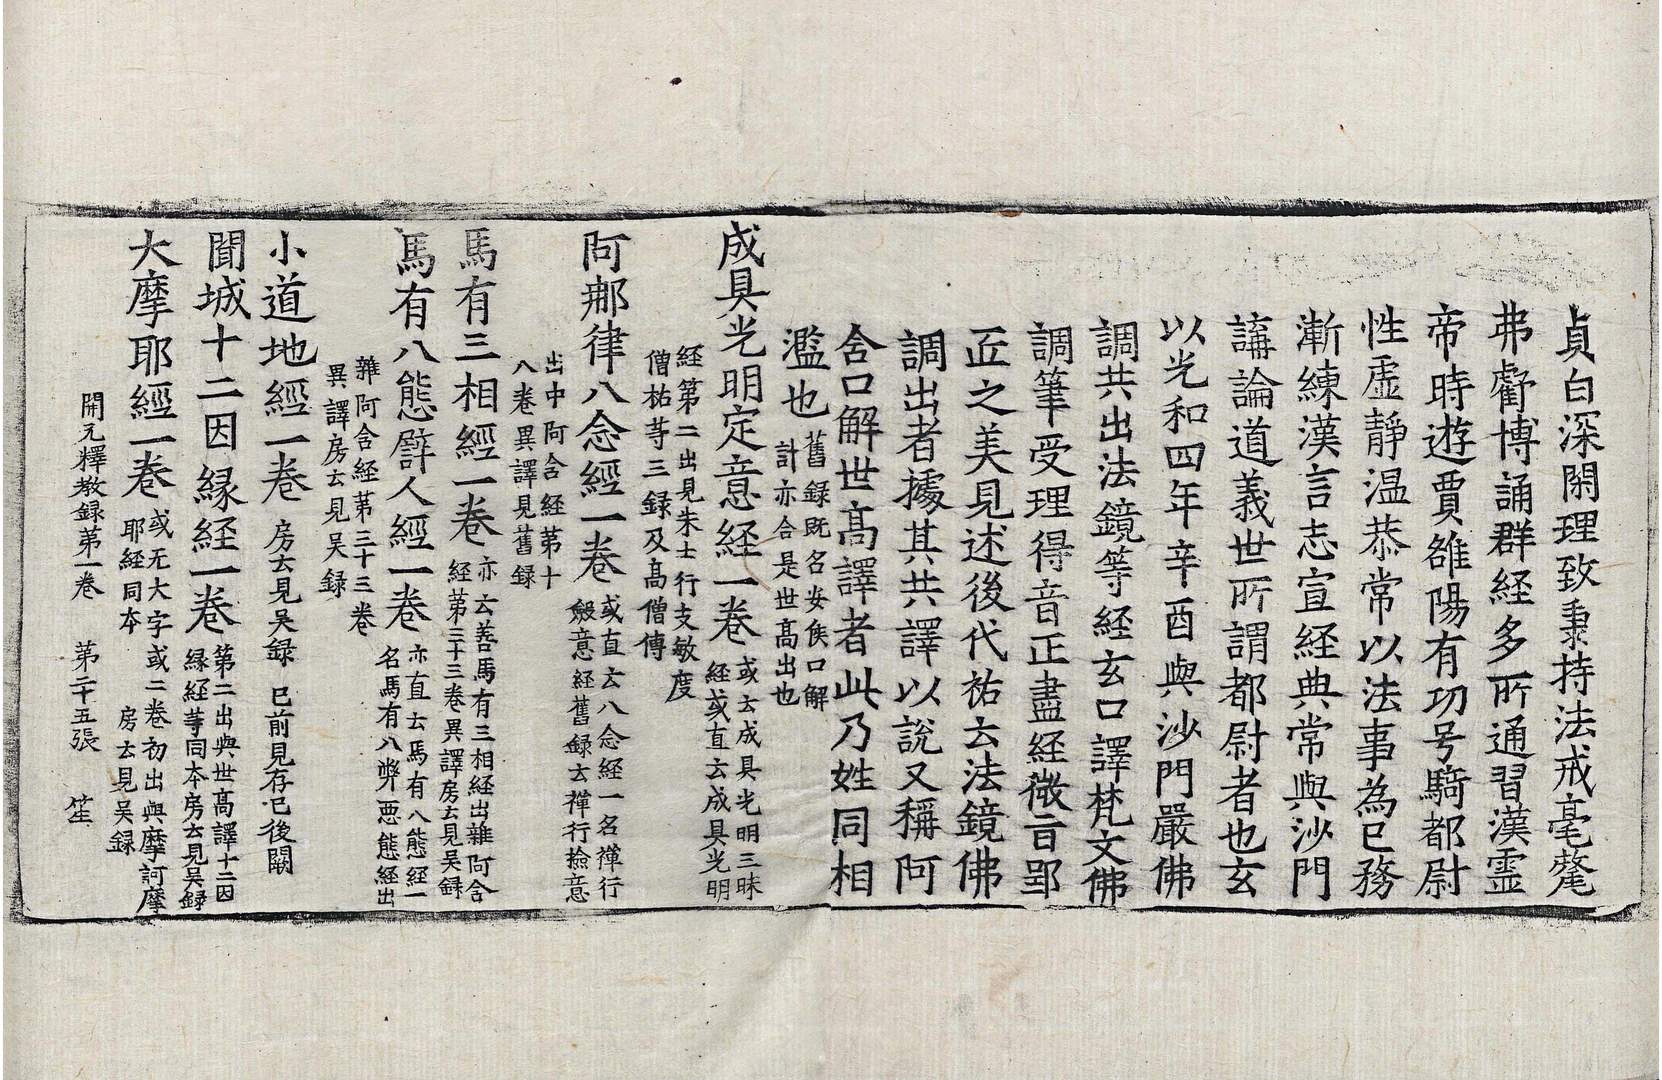 貞白深閑理致秉持法戒毫氂
弗虧博誦群経多所通習漢霊
帝時遊賈雒陽有功号騎都尉
性虛靜温恭常以法事為已務
漸練漢言志宣經典常與沙門
講論道義世所謂都尉者也玄
以光和四年辛酉與沙門嚴佛
調共出法鏡等経玄口譯梵文佛
調筆受理得音正盡経微旨郢
匠之美見述後代祐云法鏡佛
調出者據其共譯以說又稱阿
含口解世髙譯者此乃姓同相
濫也舊録既名安侯口解
計亦合是世髙出也
成具光明定意経一卷或云成具光明三昧
経或直云成具光明
経第二出見朱士行支敏度
僧祐䓁三録及髙僧傳
阿那律八念經一卷或直云八念経一名禪行
斂意経舊録云禪行撿意
出中阿含経第十
八卷異譯見舊録
馬有三相經一卷亦云善馬有三相経出雜阿含
経第三十三卷異譯房云見吴録
馬有八態譬人經一卷亦直云馬有八態経一
名馬有八弊悪態経出
雜阿含経第三十三卷
異譯房云見吴録
小道地經一卷房云見吴録 已前見存已後闕
聞城十二因縁経一卷第二出與世髙譯十二因
縁経䓁同本房云見吴録
大摩耶經一卷或无大字或二卷初出與摩訶摩
耶経同本 房云見吴録
開元釋教録第一卷 第二十五張 笙